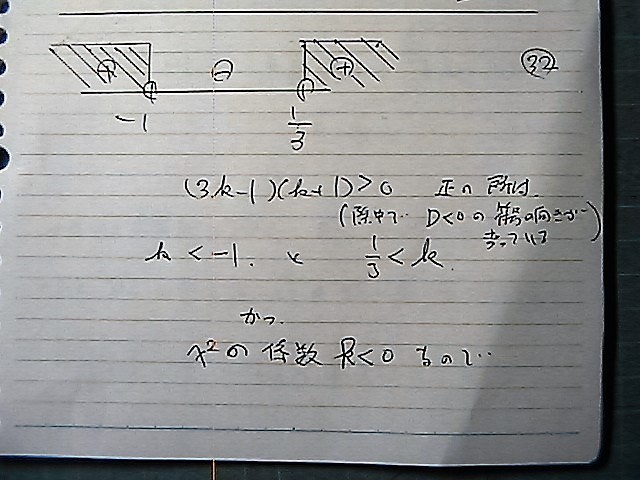 ㉜
⊕ ⊖ ⊕
-1 1/3
(3k-1)(k+1)>0 正の所は.
(途中で D<0の符号の向きが
k<-1. 1/3<k.
かつ.
x²の係数 k<0 なので…